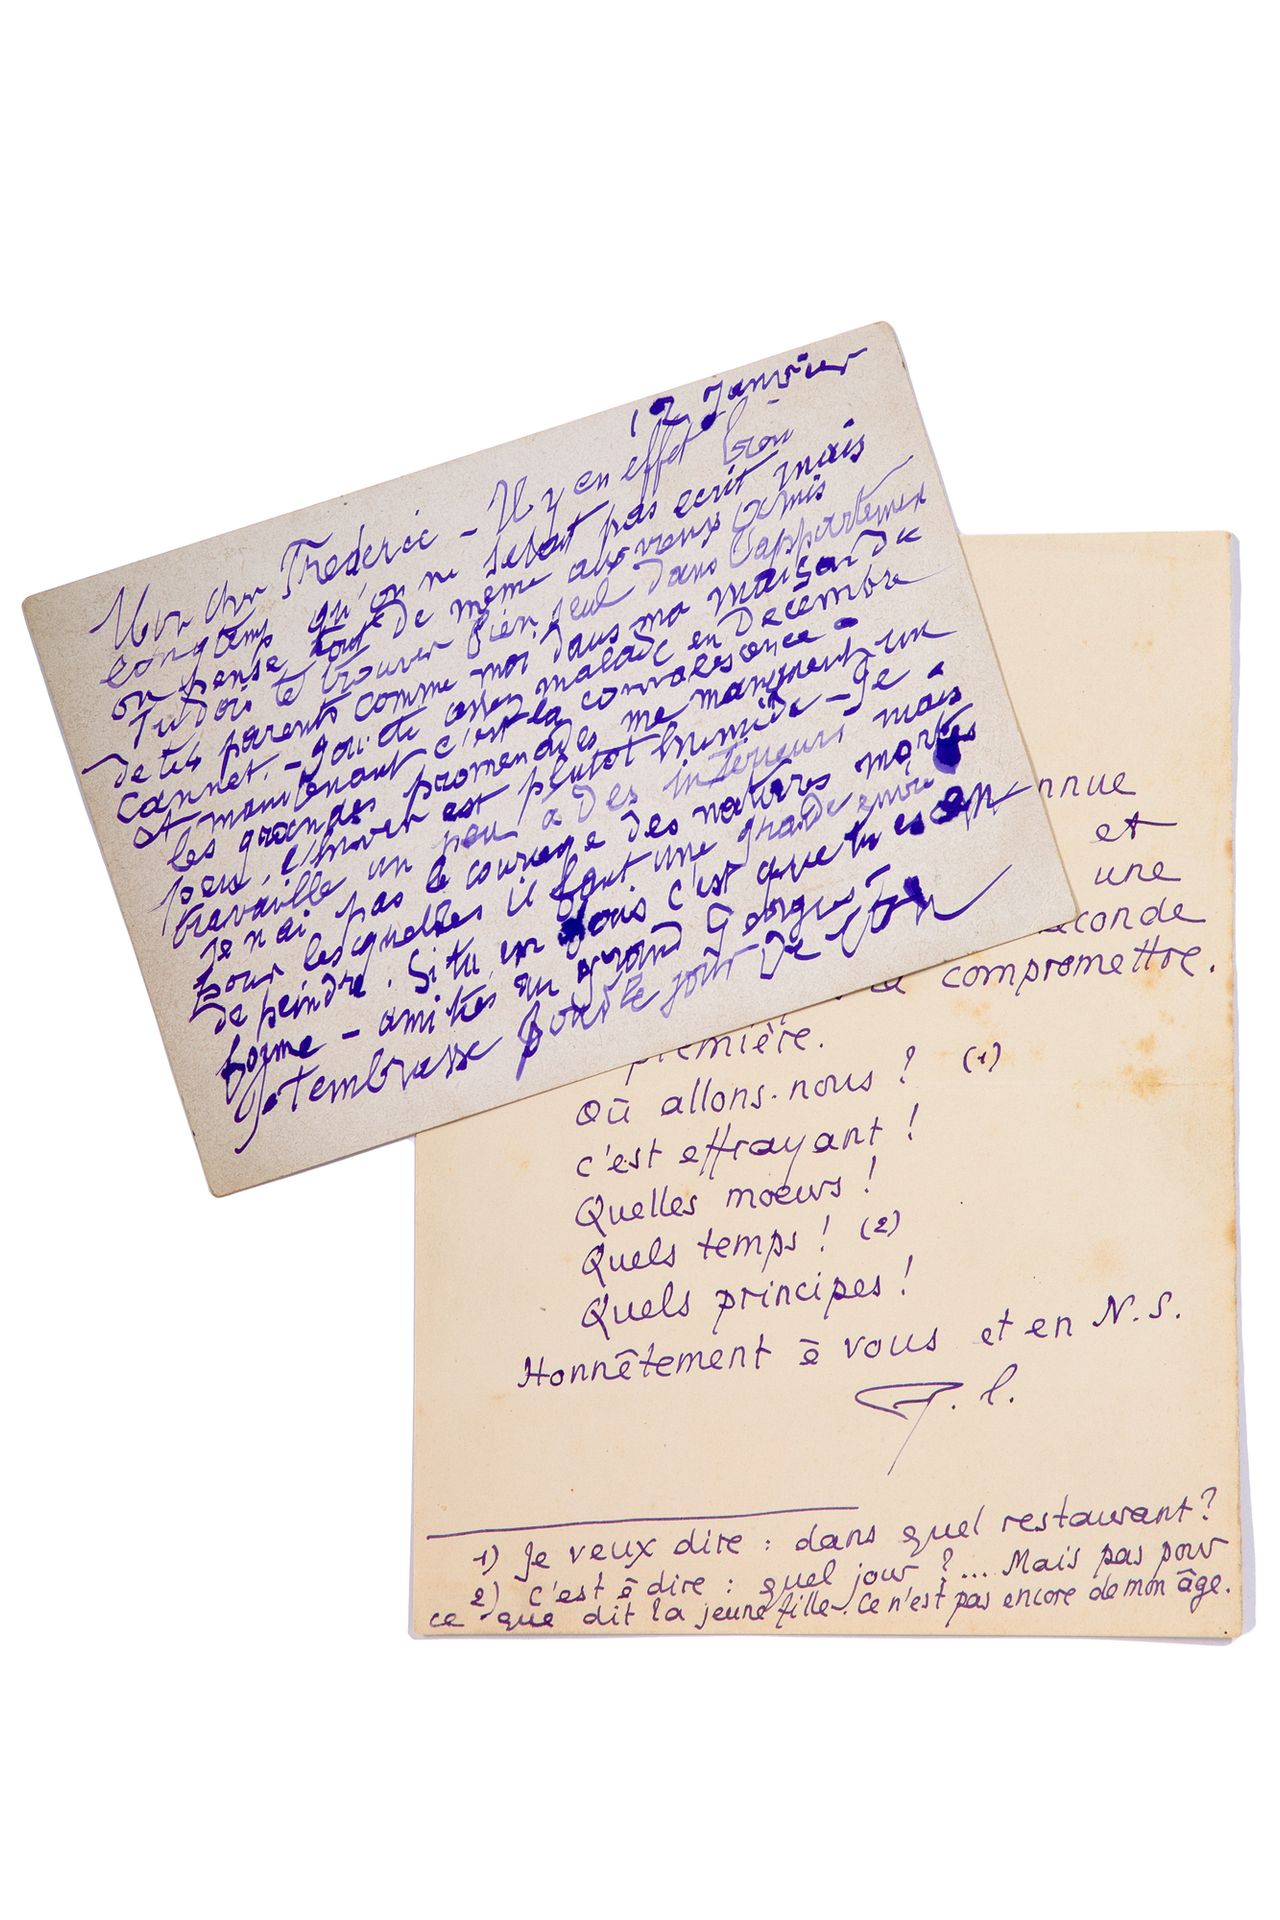 12 Janvier
Mon cher Frederic – Il y en effet bien
longtemps qu'on ne setait pas ecrit mais
on pense tout de même aux vieux amis
Tu dois te trouver bien seul dans l'appartement
de tes parents comme moi dans ma maison du
Cannet. – J'ai été assez malade en Decembre
et maintenant c'est la convalescence –
les grandes promenades me manquent un
peu. l'hiver est plutot humide – Je
travaille un peu à des interieurs mais
Je n'ai pas le courage des natures mortes
pour lesquelles il faut une grande envie
de peindre. Si tu c'est que tu es en
forme – amities au grand Georges
Je t'embrasse
nnue
et
une
seconde
compromettre.
première.
Où allons-nous ? (1)
c'est effrayant !
Quelles moeurs !
Quels temps ! (2)
Quels principes !
Honnêtement à vous et en N.S.
1) Je veux dire : dans quel restaurant ?
2) C'est à dire : quel jour ?... Mais pas pour
ce que dit la jeune fille. Ce n'est pas encore de mon âge.